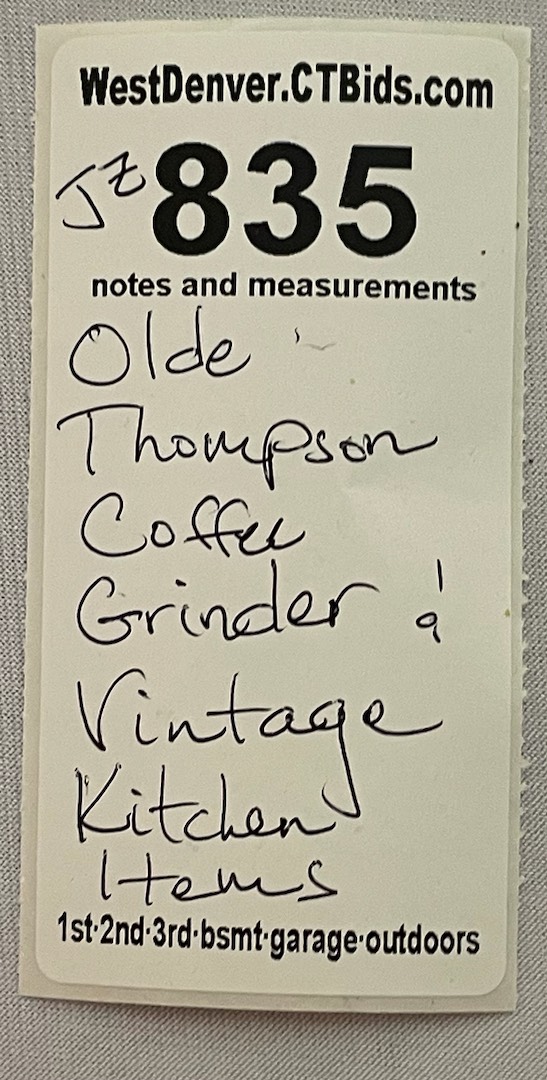 WestDenver.CTBids.com
JZ 835
notes and measurements
Olde
Thompson
Coffee
Grinder &
Vintage
Kitchen
Items
1st·2nd·3rd·bsmt·garage·outdoors